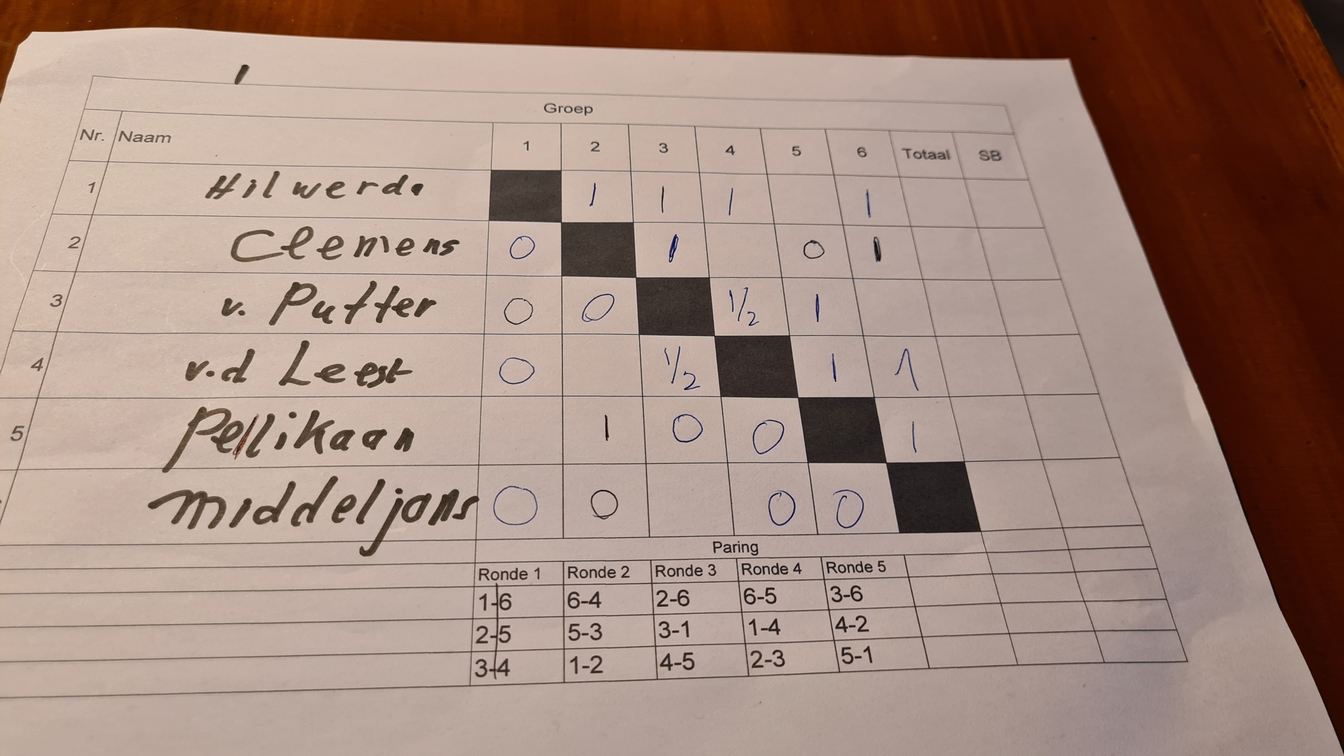 1
Groep
Nr. Naam 1 2 3 4 5 6 Totaal SB
1 Hilwerda 1 1 1 1
2 Clemens 0 1 0 1
3 v. Putter 0 0 1/2 1
4 v.d Leest 0 1/2 1 1
5 Pellikaan 1 0 0 1
middeljans 0 0 0 0
Paring
Ronde 1 Ronde 2 Ronde 3 Ronde 4 Ronde 5
1-6 6-4 2-6 6-5 3-6
2-5 5-3 3-1 1-4 4-2
3-4 1-2 4-5 2-3 5-1